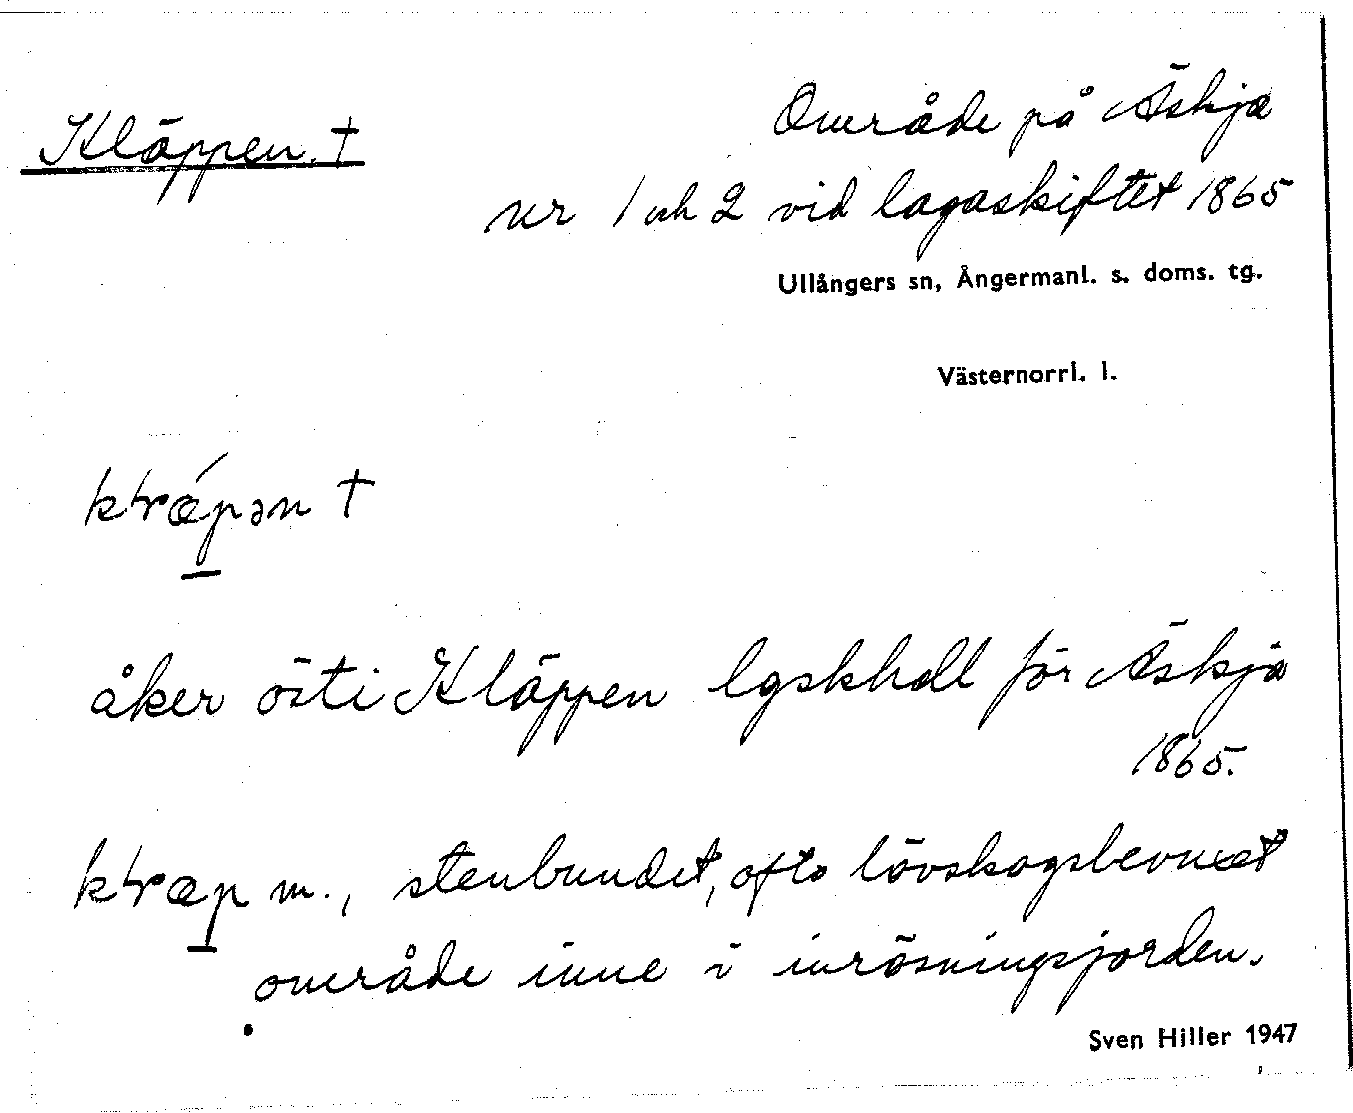 Kläppen. †
Område på Äskja
nr 1 och 2 vid lagaskiftet 1865
Ullångers sn, Ångermanl. s. doms. tg.
Västernorrl. l.
kɽæ´pən †
åker östi Kläppen lgskhdl för Äskja
1865.
kɽæp m., stenbundet, ofta lövskogsbevuxet
område inne i inrösningsjorden.
Sven Hiller 1947